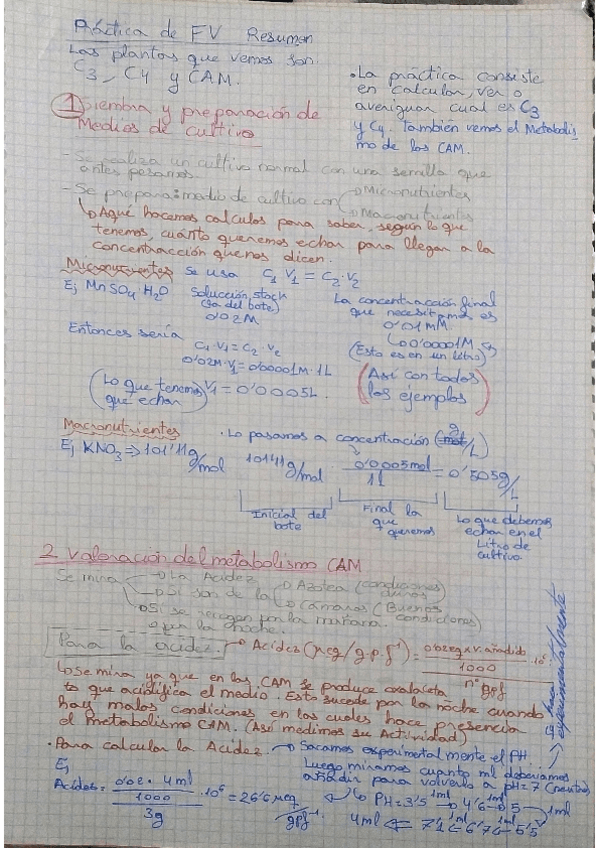 Práctica de FV Resumen
Las plantas que vemos son
C3, C4 y CAM.
• La práctica consiste
en calcular, ver o
averiguar cual es C3
y C4. También vemos el Metabolis
mo de las CAM.
1 Siembra y preparación de
Medios de cultivo
- Se realiza un cultivo normal con una semilla que
antes pesamos.
- Se prepara: medio de cultivo con
Micronutrientes
Macronutrientes
Aquí hacemos calculos para saber, según lo que
tenemos, cuánto queremos echar para llegar a la
concentracción que nos dicen.
Micronutrientes se usa C1 V1 = C2 · V2
Ej MnSO4·H2O
Solucción stock
(la del bote)
0'02M
La concentracción final
que necesitamos es
0'01mM
0'00001M
(Esto es en un litro)
Entonces sería
C1·V1=C2·V2
0'02M·V1=0'00001M·1L
(Lo que tenemos
que echar)
V1=0'0005L.
(Así con todos
los ejemplos)
Macronutrientes
• Lo pasamos a concentración (g/L)
Ej KNO3 ⇒ 101'11g/mol
101'11g/mol
0'0005mol
1l
= 0'505g/L
Inicial del
bote
Final la
que
queremos
Lo que debemos
echar en el
Litro de
cultivo
2. Valoración del metabolismo CAM
Se mira
La Acidez
Si son de la
Azotea (condiciones
duras)
Cámaras (Buenas
condiciones)
Si se recogen por la mañana
o por la noche.
Para la acidez.
Acidez (μeq/g.p.f⁻¹) =
1000
· 10⁶
nº gpf
Se mira ya que en las CAM se produce oxalaceta
to que acidifica el medio. Esto sucede por la noche cuando
hay malas condiciones en las cuales hace presencia
el metabolismo CAM. (Así medimos su Actividad)
experimentalmente
• Para calcular la Acidez.
Sacamos experimentalmente el PH.
Luego miramos cuanto ml deberíamos
añadir para volverlo a pH=7 (neutro)
Ej
Acidez=
0'02 · 4ml
1000
3g
· 10⁶ = 26'6 μeq
gpf⁻¹
PH=3'5 1ml 4'6 1ml 5 1ml
4ml ⇐ 7'1 1ml 6'7 1ml 5'5